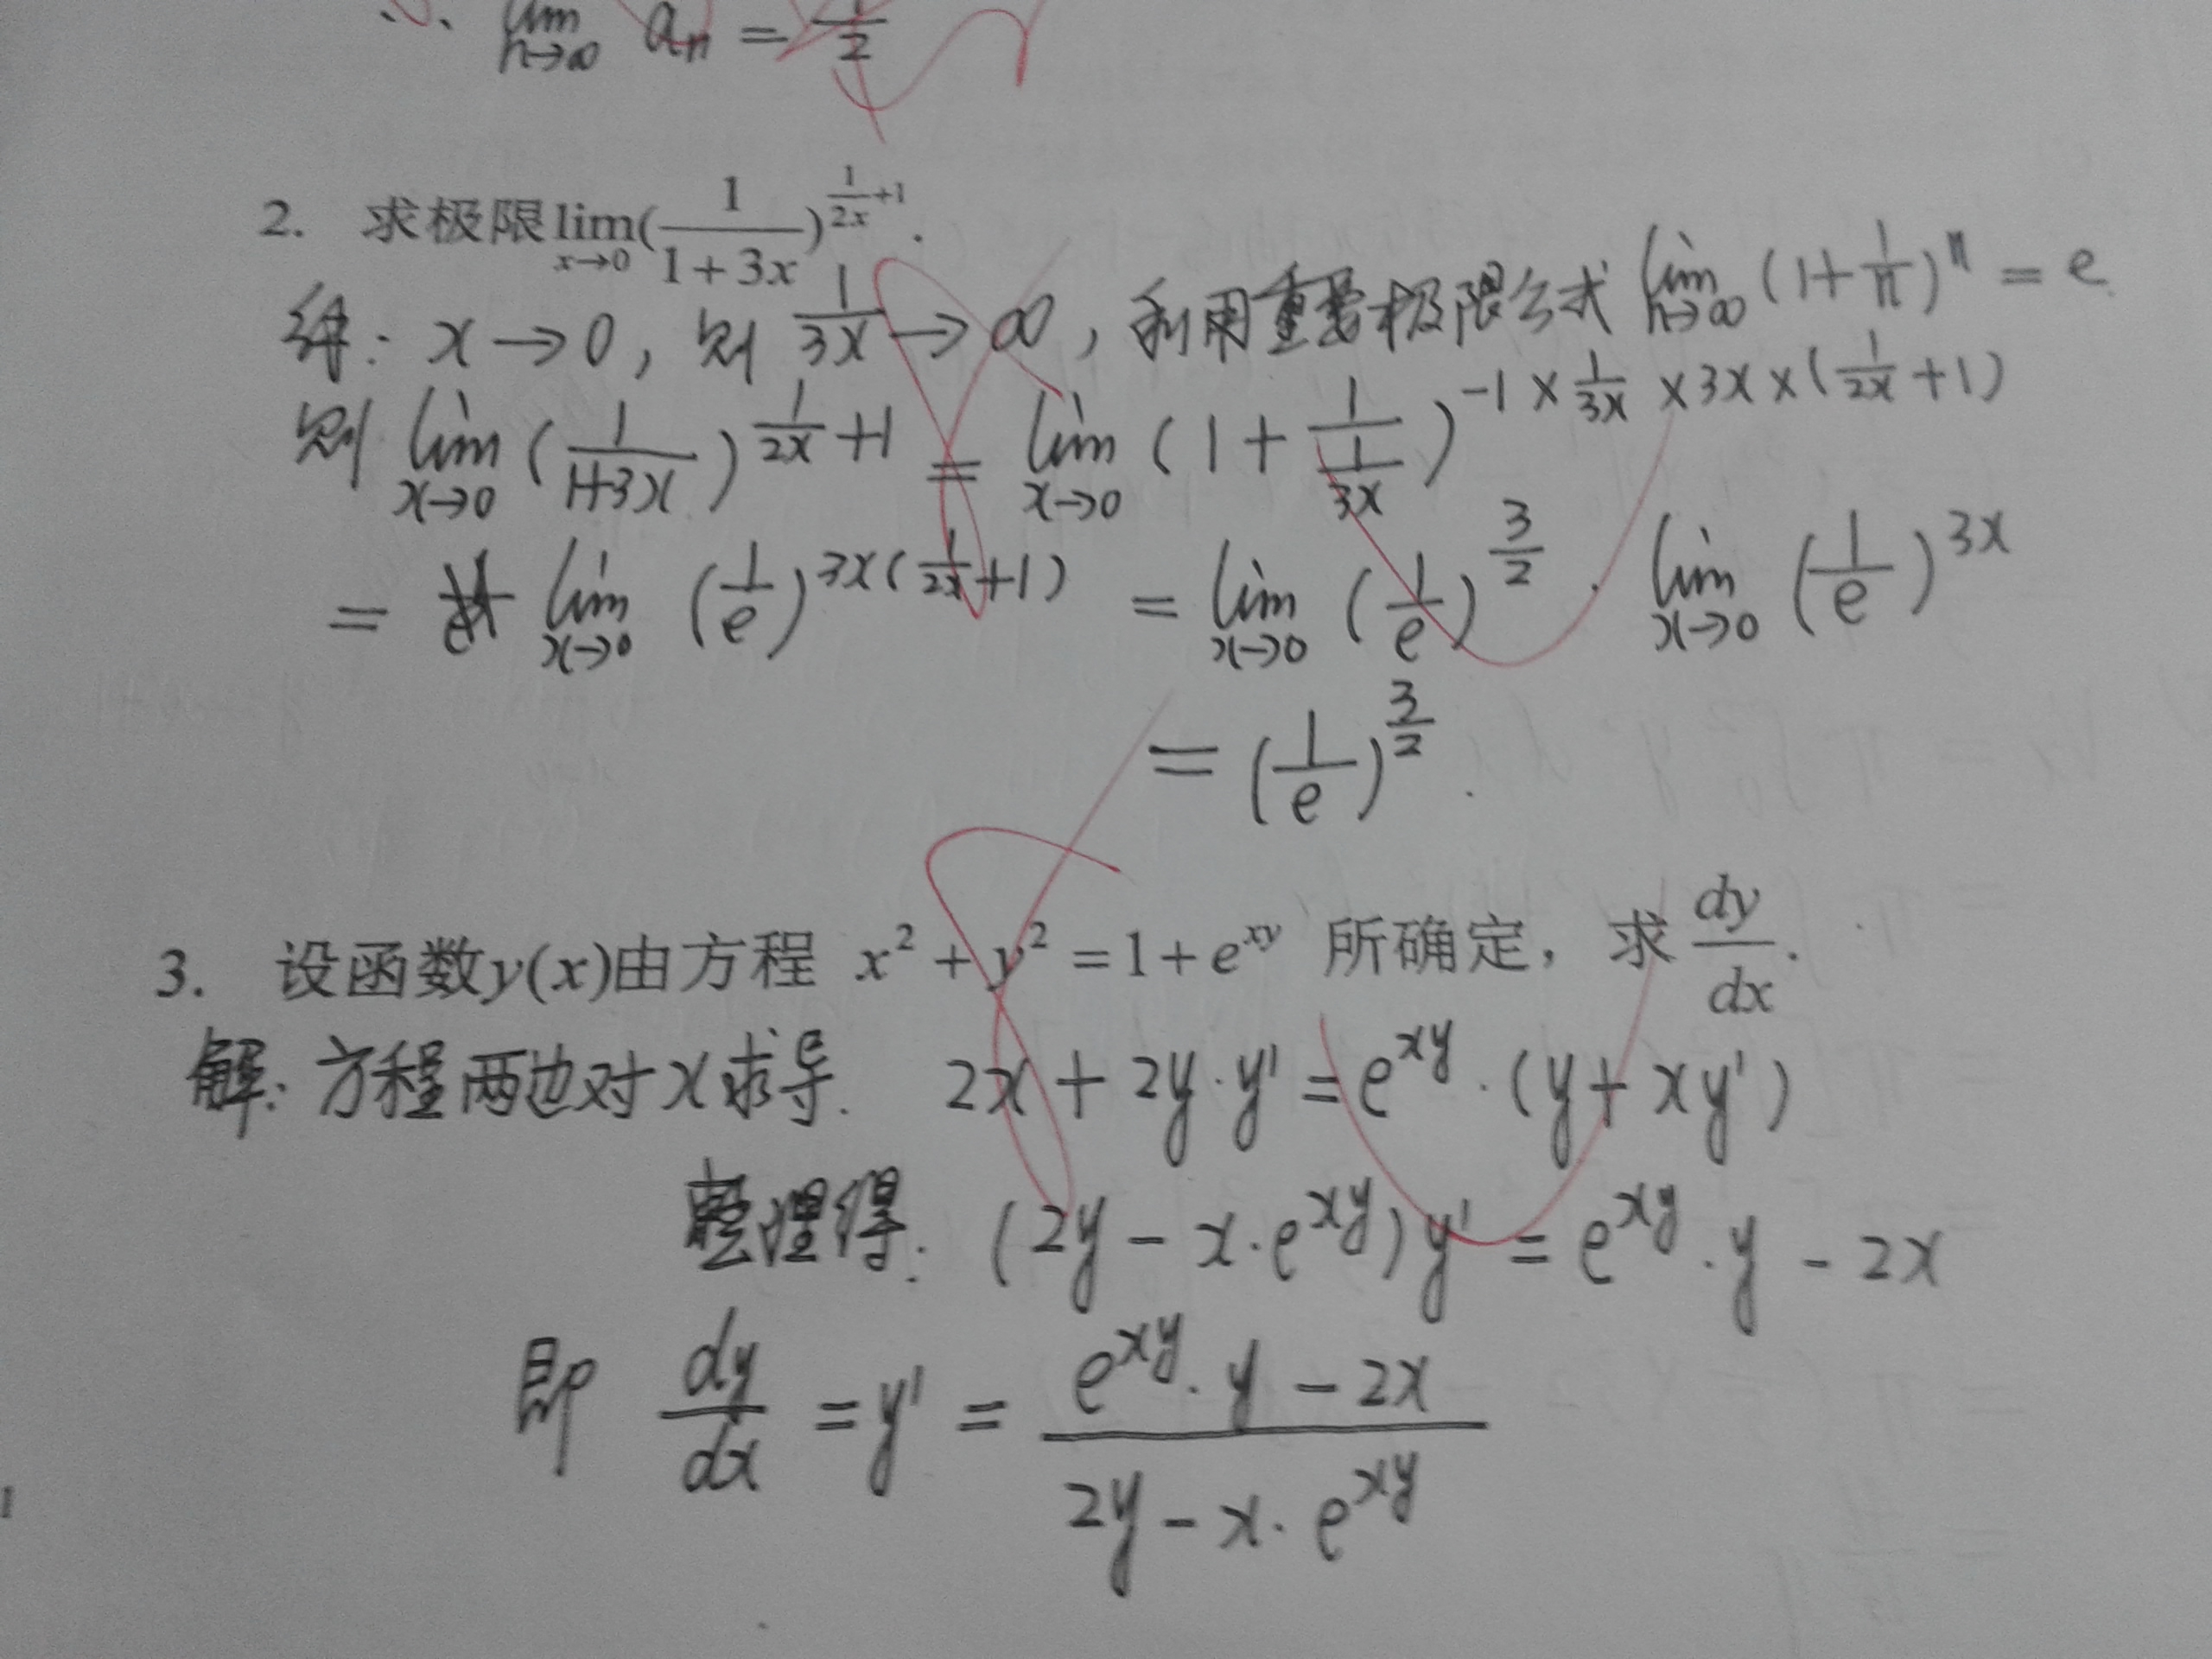 ∴ lim n→∞ aₙ = 1/2
2. 求极限 lim x→0 (1/(1+3x))^(1/(2x)+1).
解: x→0, 则 1/(3x) →∞, 利用重要极限公式 lim n→∞ (1+1/n)^n = e.
则 lim x→0 (1/(1+3x))^(1/(2x)+1) = lim x→0 (1+1/(1/(3x)))^(-1×1/(3x)×3x×(1/(2x)+1))
= lim x→0 (1/e)^(3x(1/(2x)+1)) = lim x→0 (1/e)^(3/2) · lim x→0 (1/e)^(3x)
= (1/e)^(3/2).
3. 设函数y(x)由方程 x²+y²=1+e^(xy) 所确定，求 dy/dx.
解: 方程两边对x求导. 2x+2y·y'=e^(xy)·(y+xy')
整理得: (2y-x·e^(xy))y'=e^(xy)·y-2x
即 dy/dx = y' = (e^(xy)·y-2x)/(2y-x·e^(xy))
1